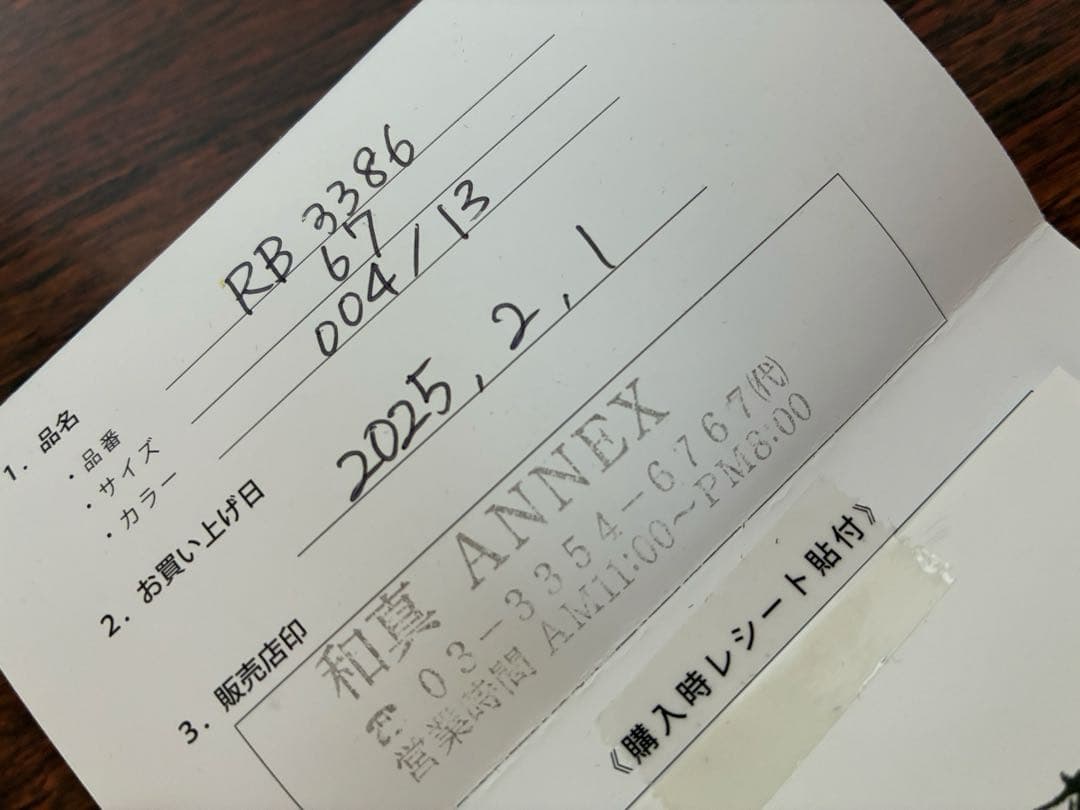 1. 品名
・品番 RB 3386
・サイズ 67
・カラー 004/13
2. お買い上げ日 2025, 2, 1
3. 販売店印
和真 ANNEX
03-3354-6767(代)
営業時間 AM11:00~PM8:00
《購入時レシート貼付》